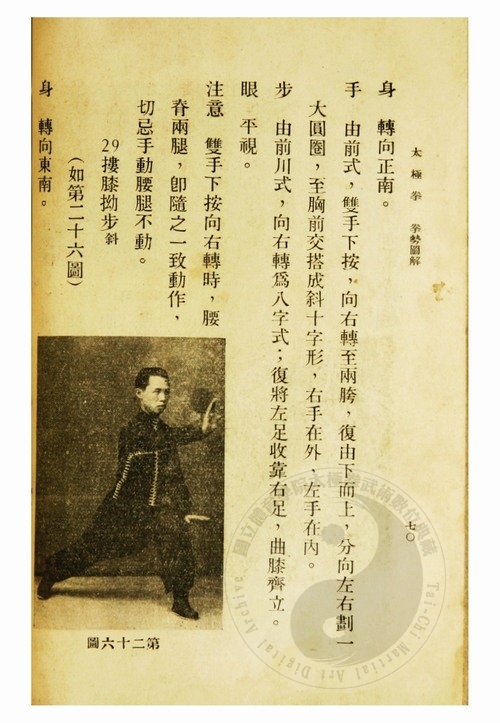 太極拳　拳勢圖解
七〇
身　轉向正南。
手　由前式，雙手下按，向右轉至兩胯，復由下而上，分向左右劃一
大圓圈，至胸前交搭成斜十字形，右手在外、左手在內。
步　由前川式，向右轉爲八字式；復將左足收靠右足，曲膝齊立。
眼　平視。
注意　雙手下按向右轉時，腰
脊兩腿，卽隨之一致動作，
切忌手動腰腿不動。
29摟膝拗步斜
（如第二十六圖）
身　轉向東南。
圖六十二第
Tai-Chi Martial Art Digital Archive